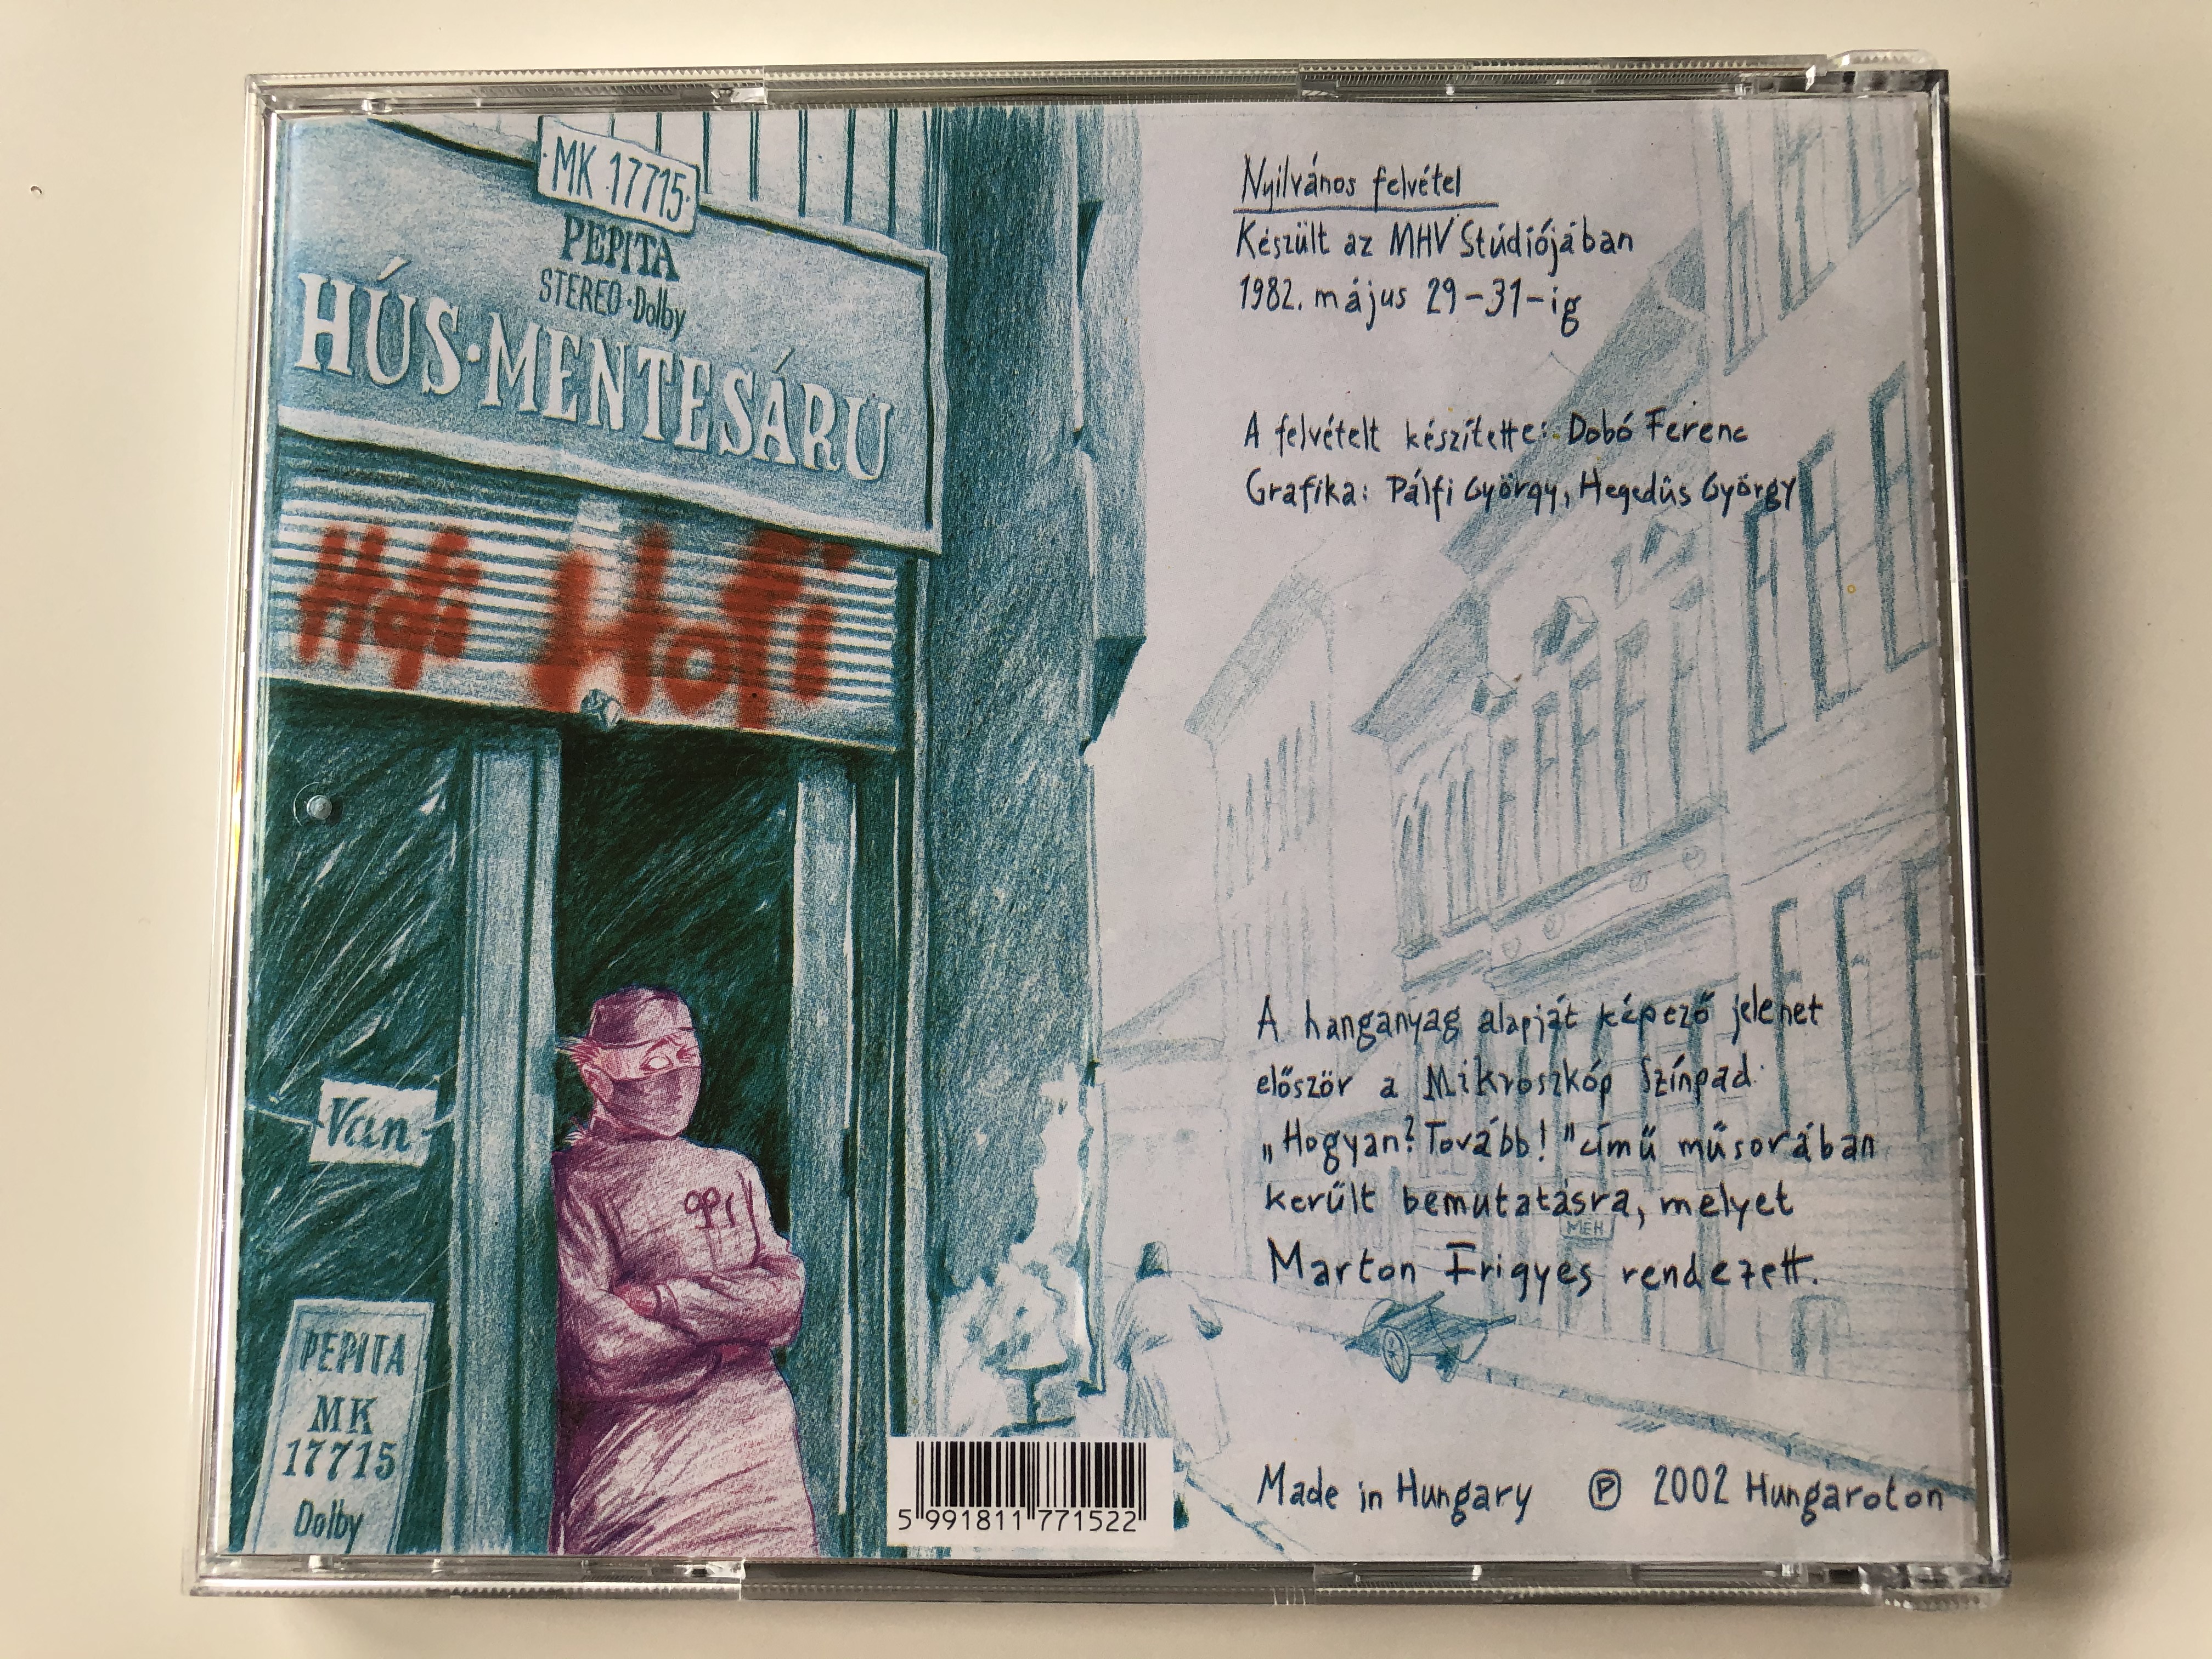 MK 17715
PEPITA
STEREO·Dolby
HÚS·MENTESÁRU
Hofi Hofi
Ván
PEPITA
MK
17715
Dolby
Nyilvános felvétel
Készült az MHV Stúdiójában
1982. május 29-31-ig
A felvételt készítette: Dobó Ferenc
Grafika: Pálfi György, Hegedűs György
A hanganyag alapját képező jelenet
először a Mikroszkóp Színpad
„Hogyan? Tovább!" című műsorában
került bemutatásra, melyet
MEH
Marton Frigyes rendezett.
5 991811 771522
Made in Hungary Ⓟ 2002 Hungaroton